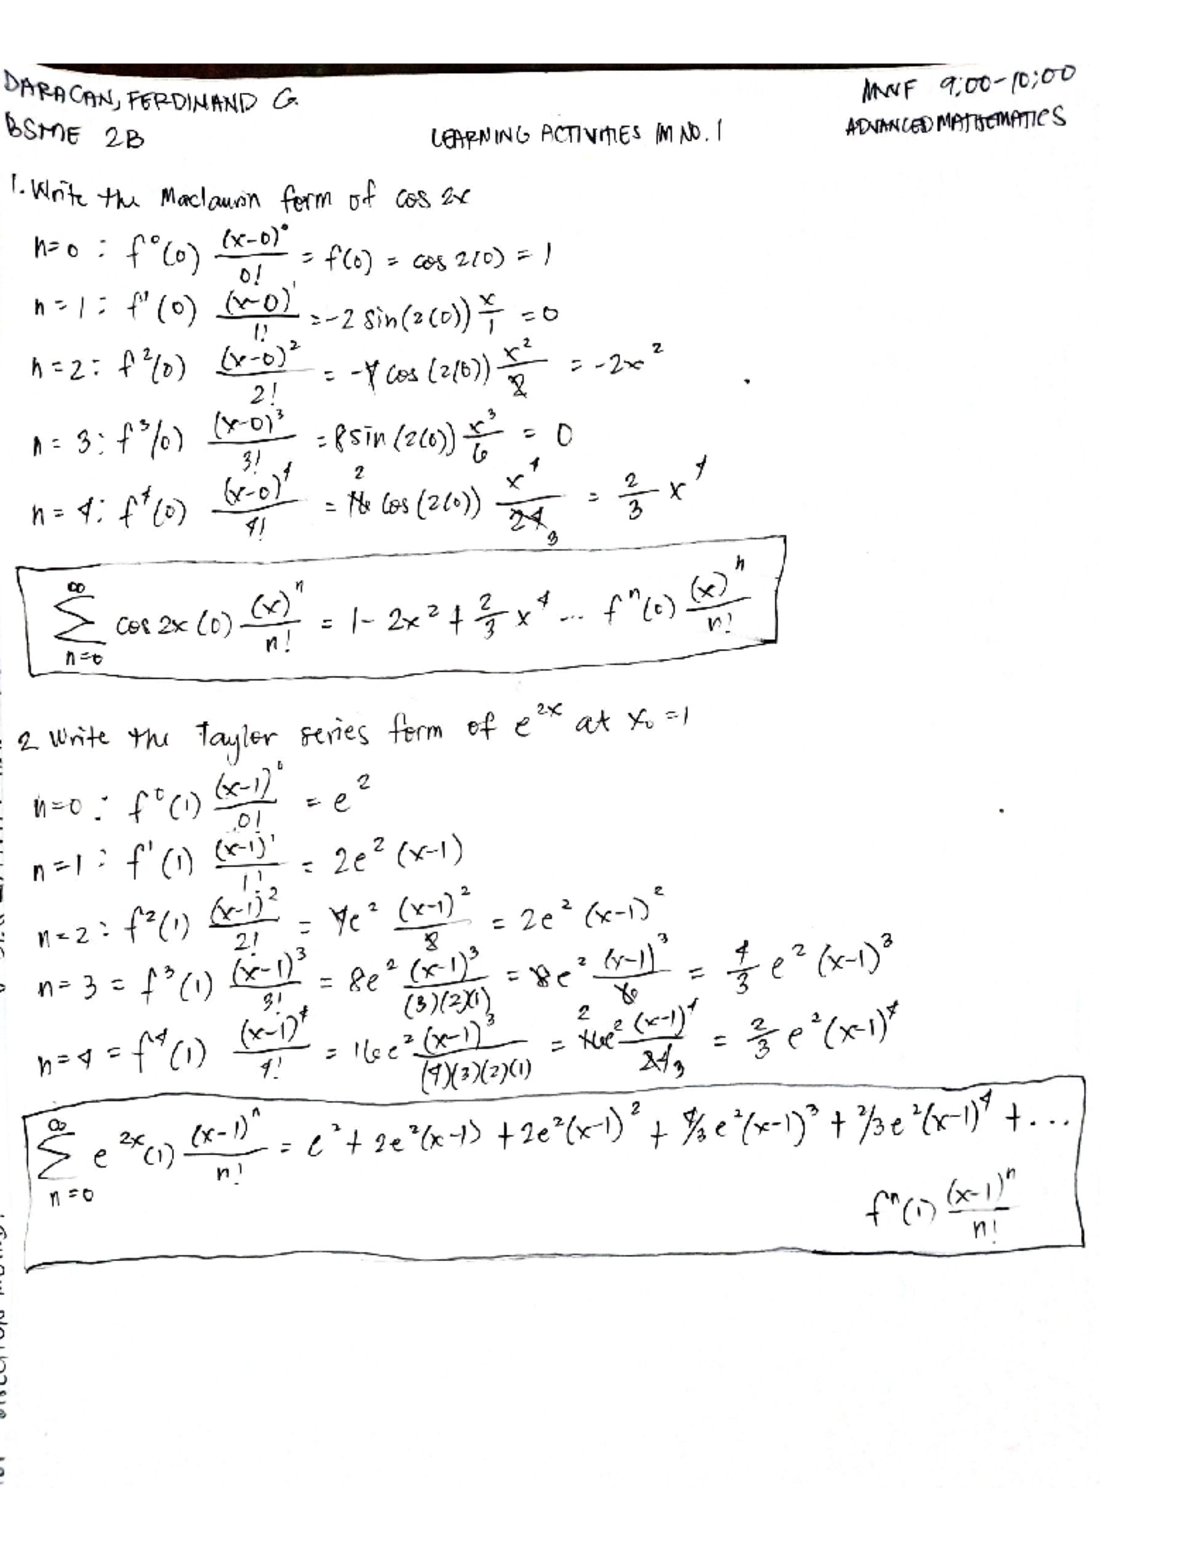 DARACAN, FERDINAND G.
MWF 9:00-10:00
BSME 2B
LEARNING ACTIVITIES IM NO. 1
ADVANCED MATHEMATICS
1. Write the Maclaurin form of cos 2x
n=0 : f⁰(0) (x-0)⁰/0! = f(0) = cos 2(0) = 1
n=1 : f'(0) (x-0)¹/1! = -2 sin(2(0)) x/1 = 0
n=2 : f²(0) (x-0)²/2! = -4 cos(2(0)) x²/2 = -2x²
n=3 : f³(0) (x-0)³/3! = 8 sin(2(0)) x³/6 = 0
n=4 : f⁴(0) (x-0)⁴/4! = 16 2 cos(2(0)) x⁴/24 3 = 2/3 x⁴
∞ Σ n=0 cos 2x (0) (x)ⁿ/n! = 1 - 2x² + 2/3 x⁴ ... fⁿ(0) (x)ⁿ/n!
2 Write the Taylor series form of e²ˣ at x₀ = 1
n=0 : f⁰(1) (x-1)⁰/0! = e²
n=1 : f'(1) (x-1)¹/1! = 2e² (x-1)
n=2 : f²(1) (x-1)²/2! = 4e² (x-1)²/2 = 2e² (x-1)²
n=3 = f³(1) (x-1)³/3! = 8e² (x-1)³/(3)(2)(1) = 8e² (x-1)³/6 = 4/3 e² (x-1)³
n=4 = f⁴(1) (x-1)⁴/4! = 16e² (x-1)³/(4)(3)(2)(1) = 2 16e² (x-1)⁴/24 3 = 2/3 e² (x-1)⁴
∞ Σ n=0 e²ˣ(1) (x-1)ⁿ/n! = e² + 2e²(x-1) + 2e²(x-1)² + 4/3 e²(x-1)³ + 2/3 e²(x-1)⁴ + ...
fⁿ(1) (x-1)ⁿ/n!